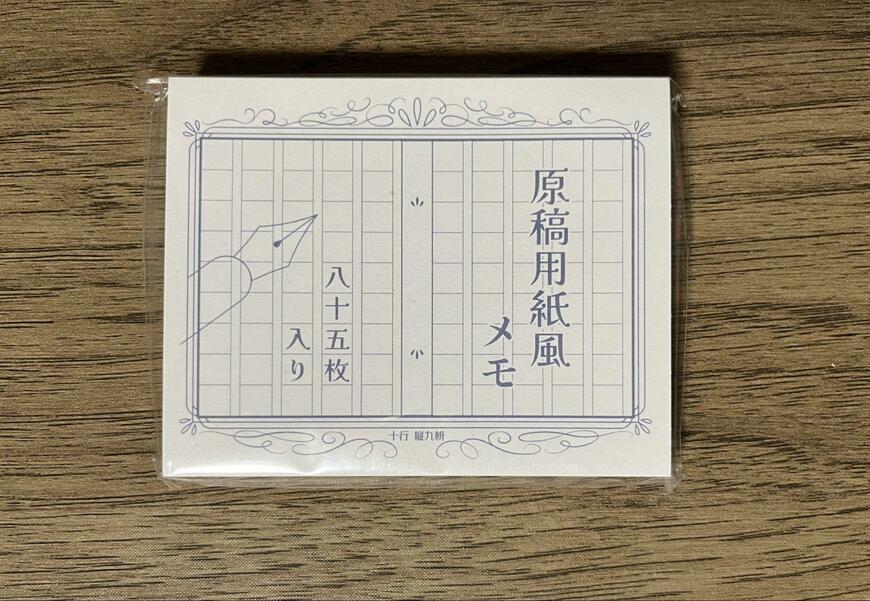 原稿用紙風
メモ
八十五枚
入り
十行 縦九桝